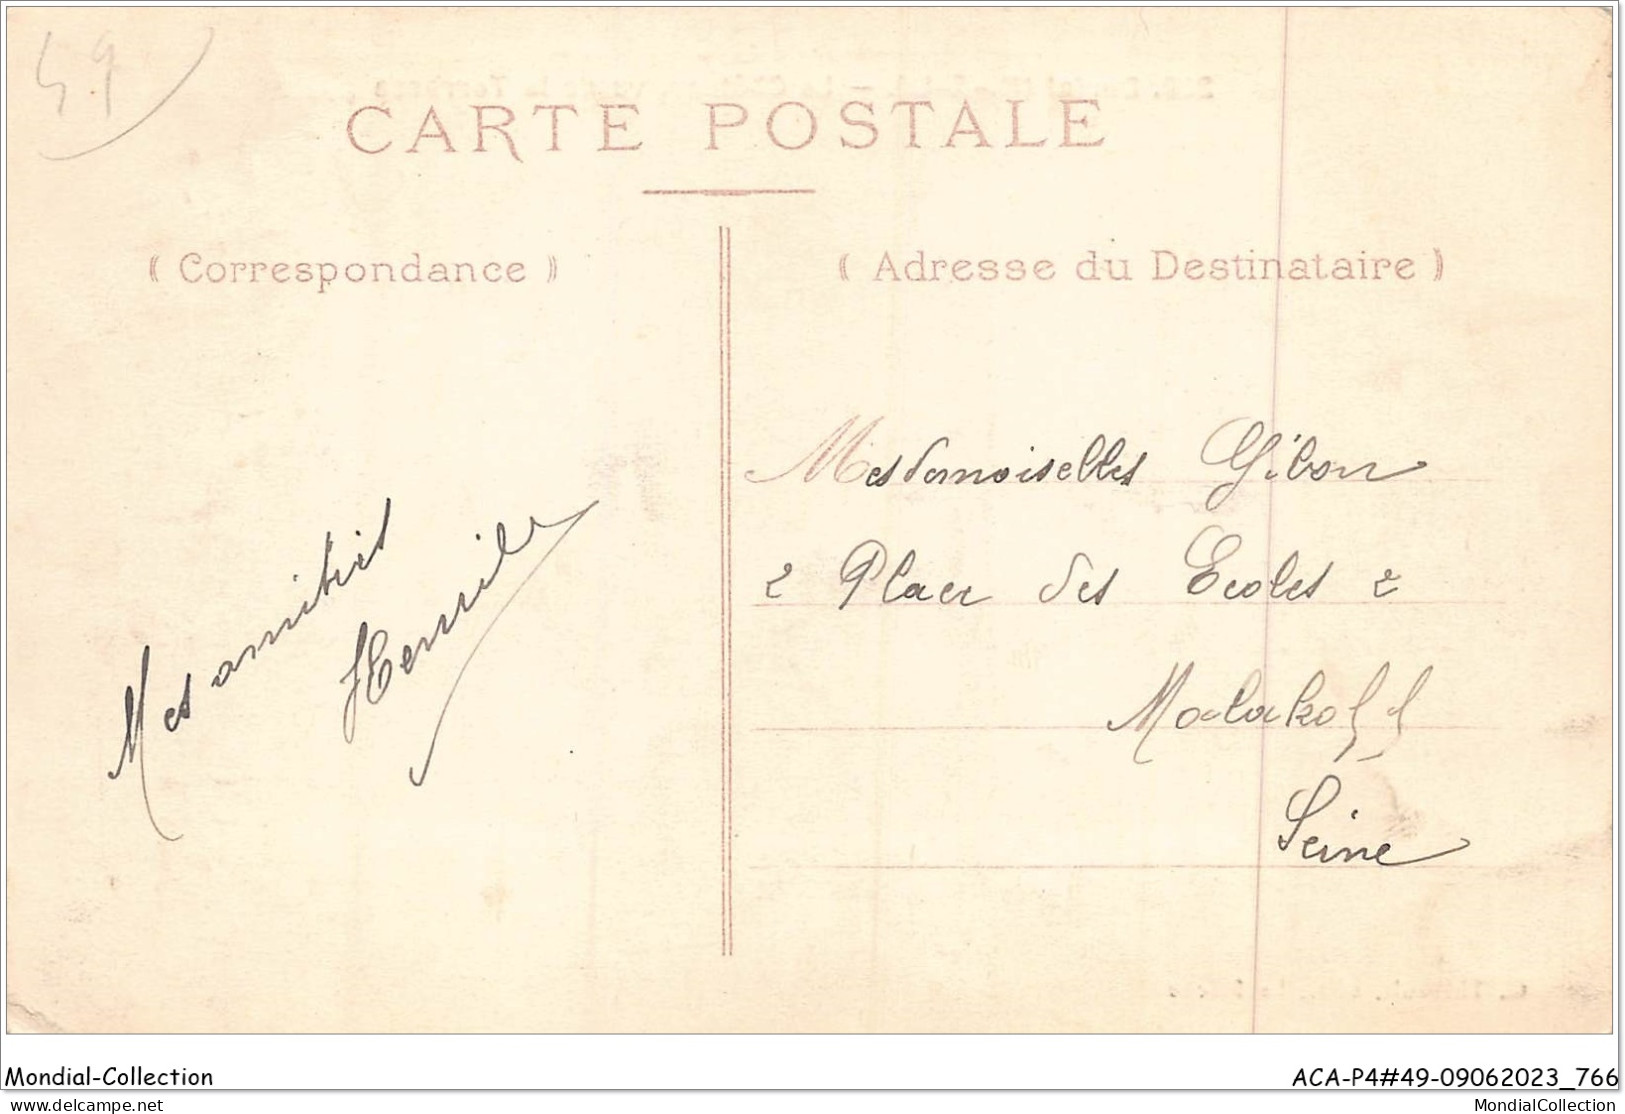 49
CARTE POSTALE
( Correspondance )
( Adresse du Destinataire )
Mes amitiés
Mesdemoiselles Gibon
2 Place des Ecoles 2
Malakoff
Seine
Mondial-Collection
ACA-P4#49-09062023_766
www.delcampe.net
MondialCollection